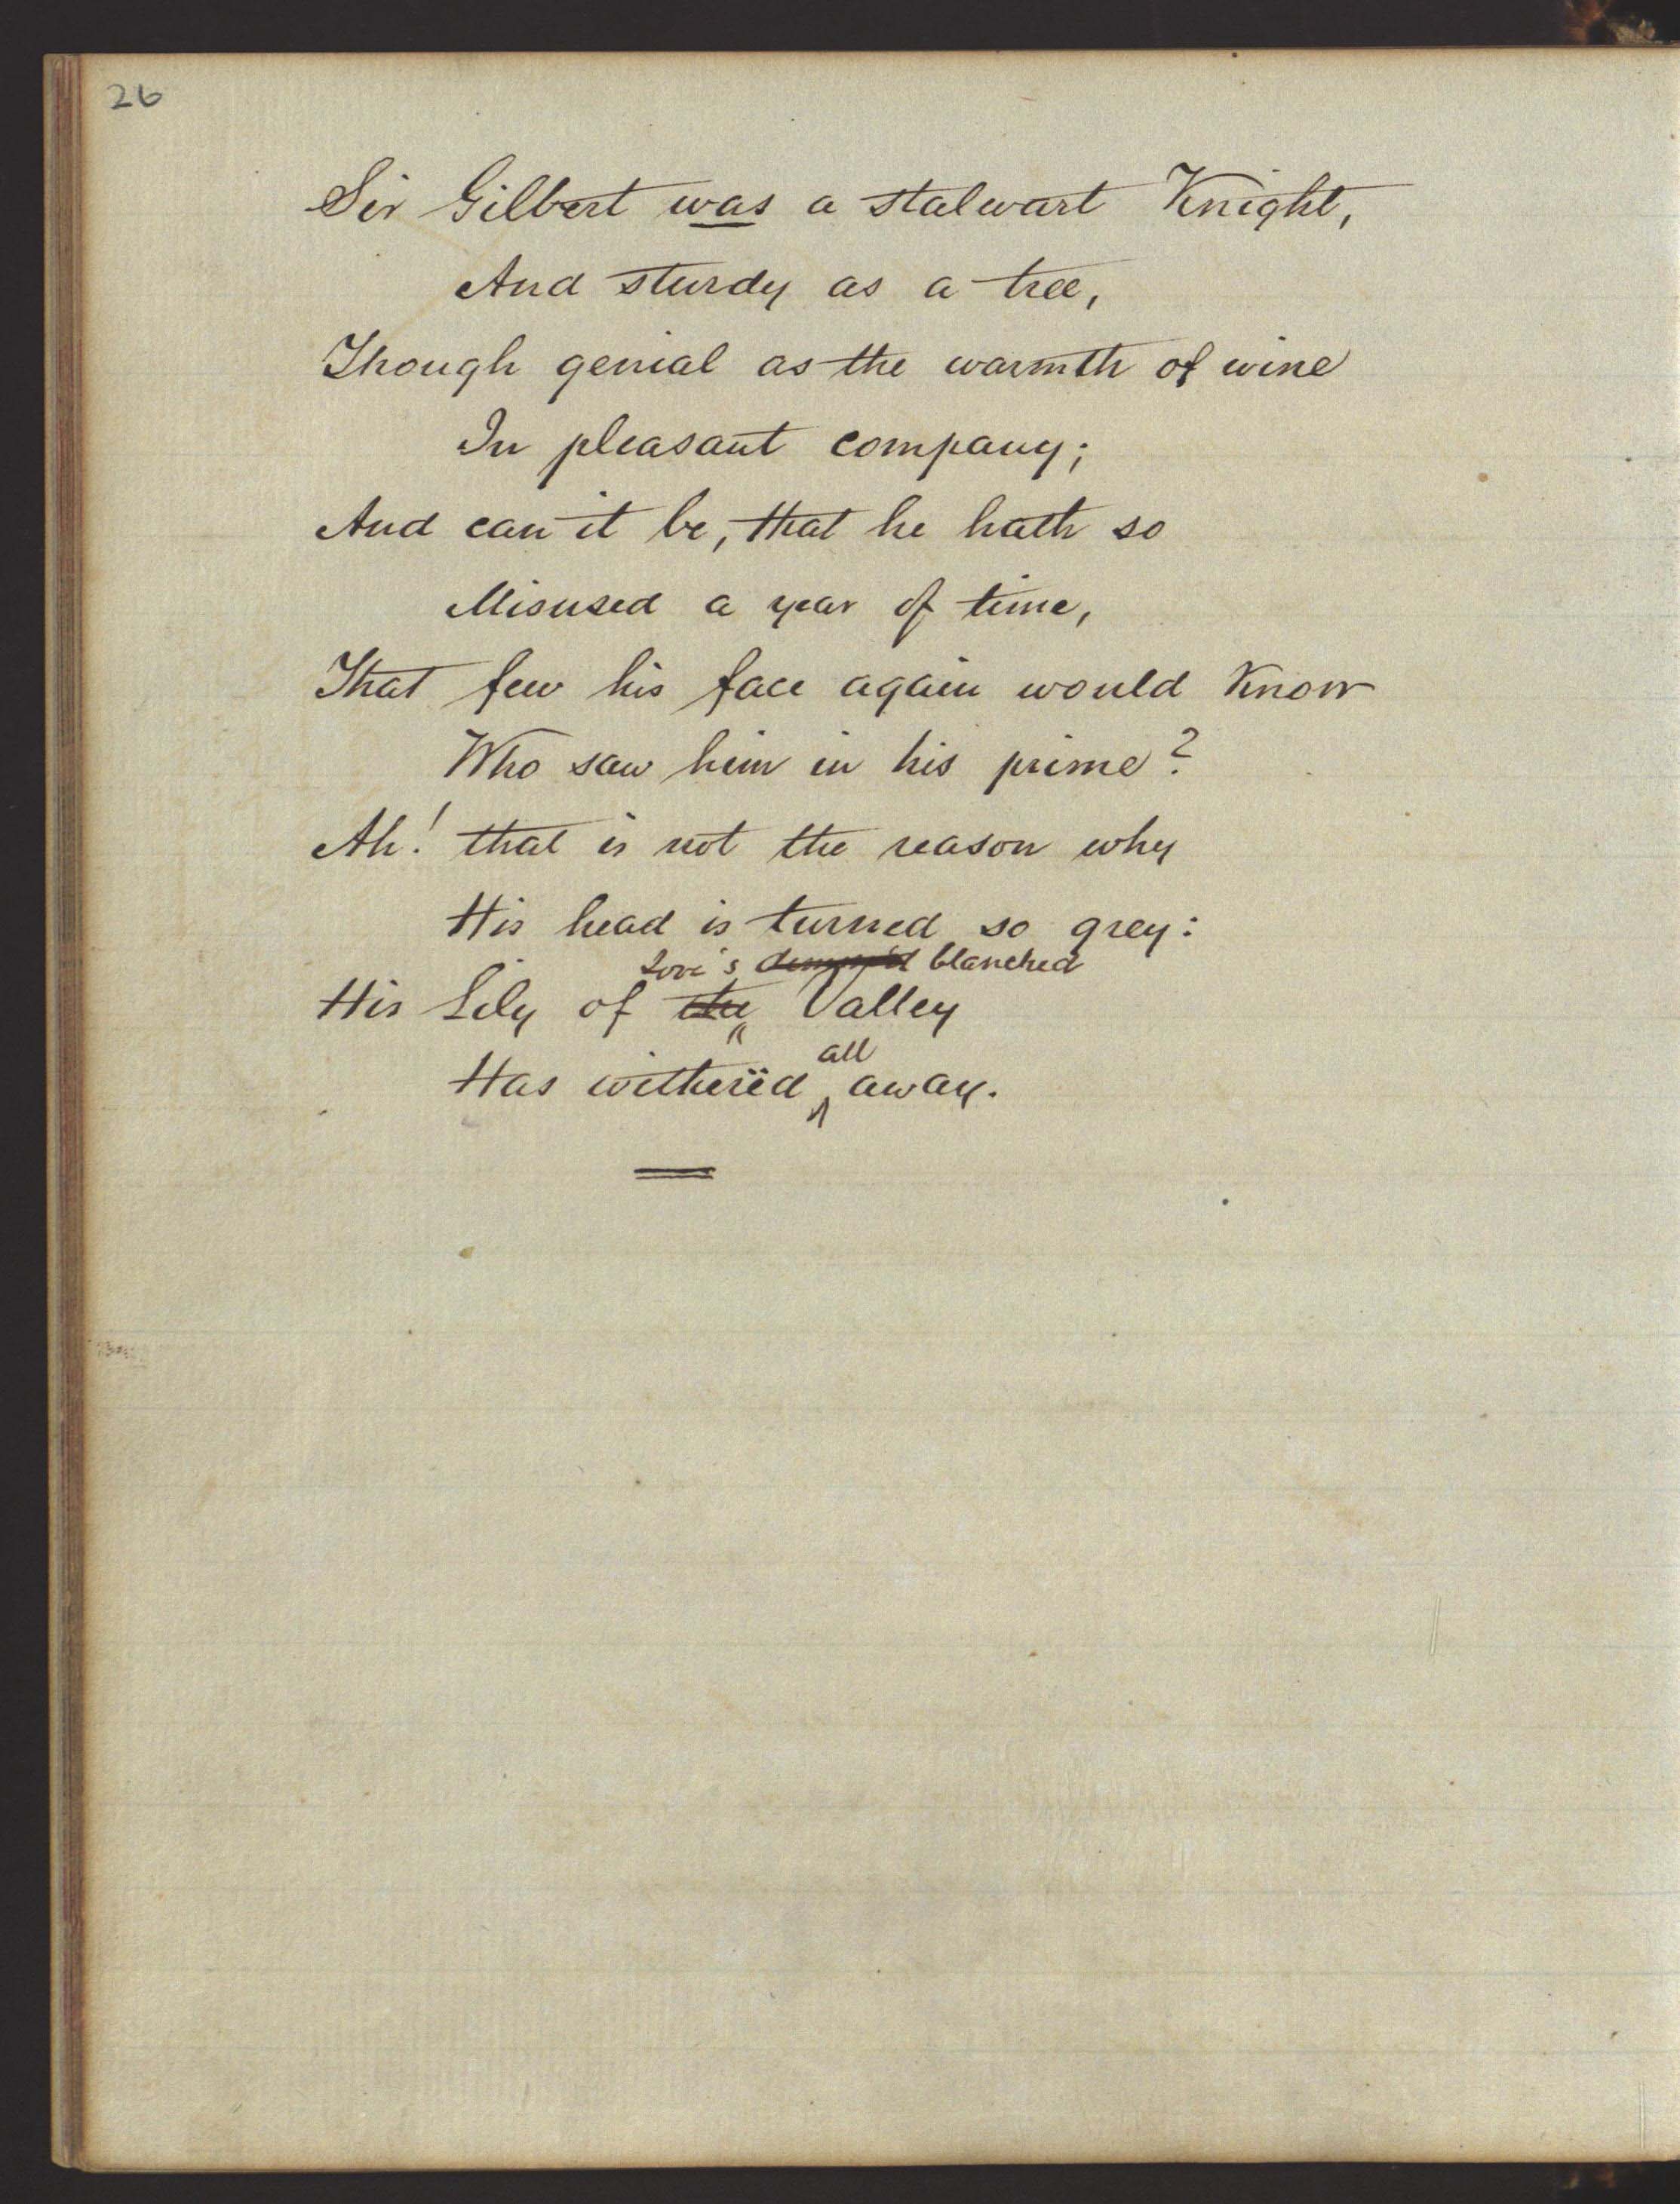 26
Sir Gilbert was a stalwart Knight,
And sturdy as a tree,
Though genial as the warmth of wine
In pleasant company;
And can it be, that he hath so
Misused a year of time,
That few his face again would know
Who saw him in his prime?
Ah! that is not the reason why
His head is turned so grey:
Love's blanched
His Lily of the Valley
all
Has witherëd away.